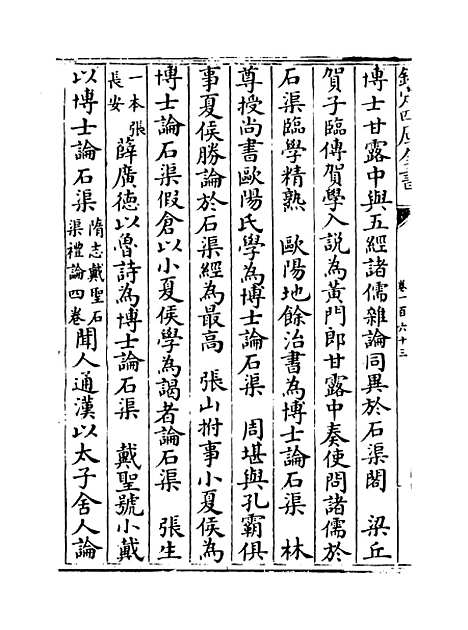 欽定四庫全書
卷一百六十三
博士甘露中與五經諸儒雜論同異於石渠閣　梁丘
賀子臨傳賀學入説為黄門郎甘露中奏使問諸儒於
石渠臨學精熟　歐陽地餘治書為博士論石渠　林
尊授尚書歐陽氏學為博士論石渠　周堪與孔霸俱
事夏侯勝論於石渠經為最高　張山拊事小夏侯為
博士論石渠假倉以小夏侯學為謁者論石渠　張生
一本張
長安
薛廣德以魯詩為博士論石渠　戴聖號小戴
以博士論石渠
隋志戴聖石
渠禮論四卷
聞人通漢以太子舍人論